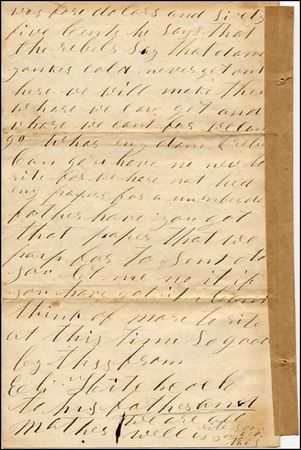 was fore dolars and sixty
five cents he says that
the rebels say that dam
yankes cold never get out
here we will make them
whare we can get and
whare we cant for we can
go whar eny dam rebel
can go i have no news to
rite for we have not had
eny papers for a
father have you got
that paper that we
for to sent to
you let me no it if
you have got it i cant
think of more to rite
at this time so good
by this from
Eli Whitehead
to his father and
mother we are all
well
rite soon